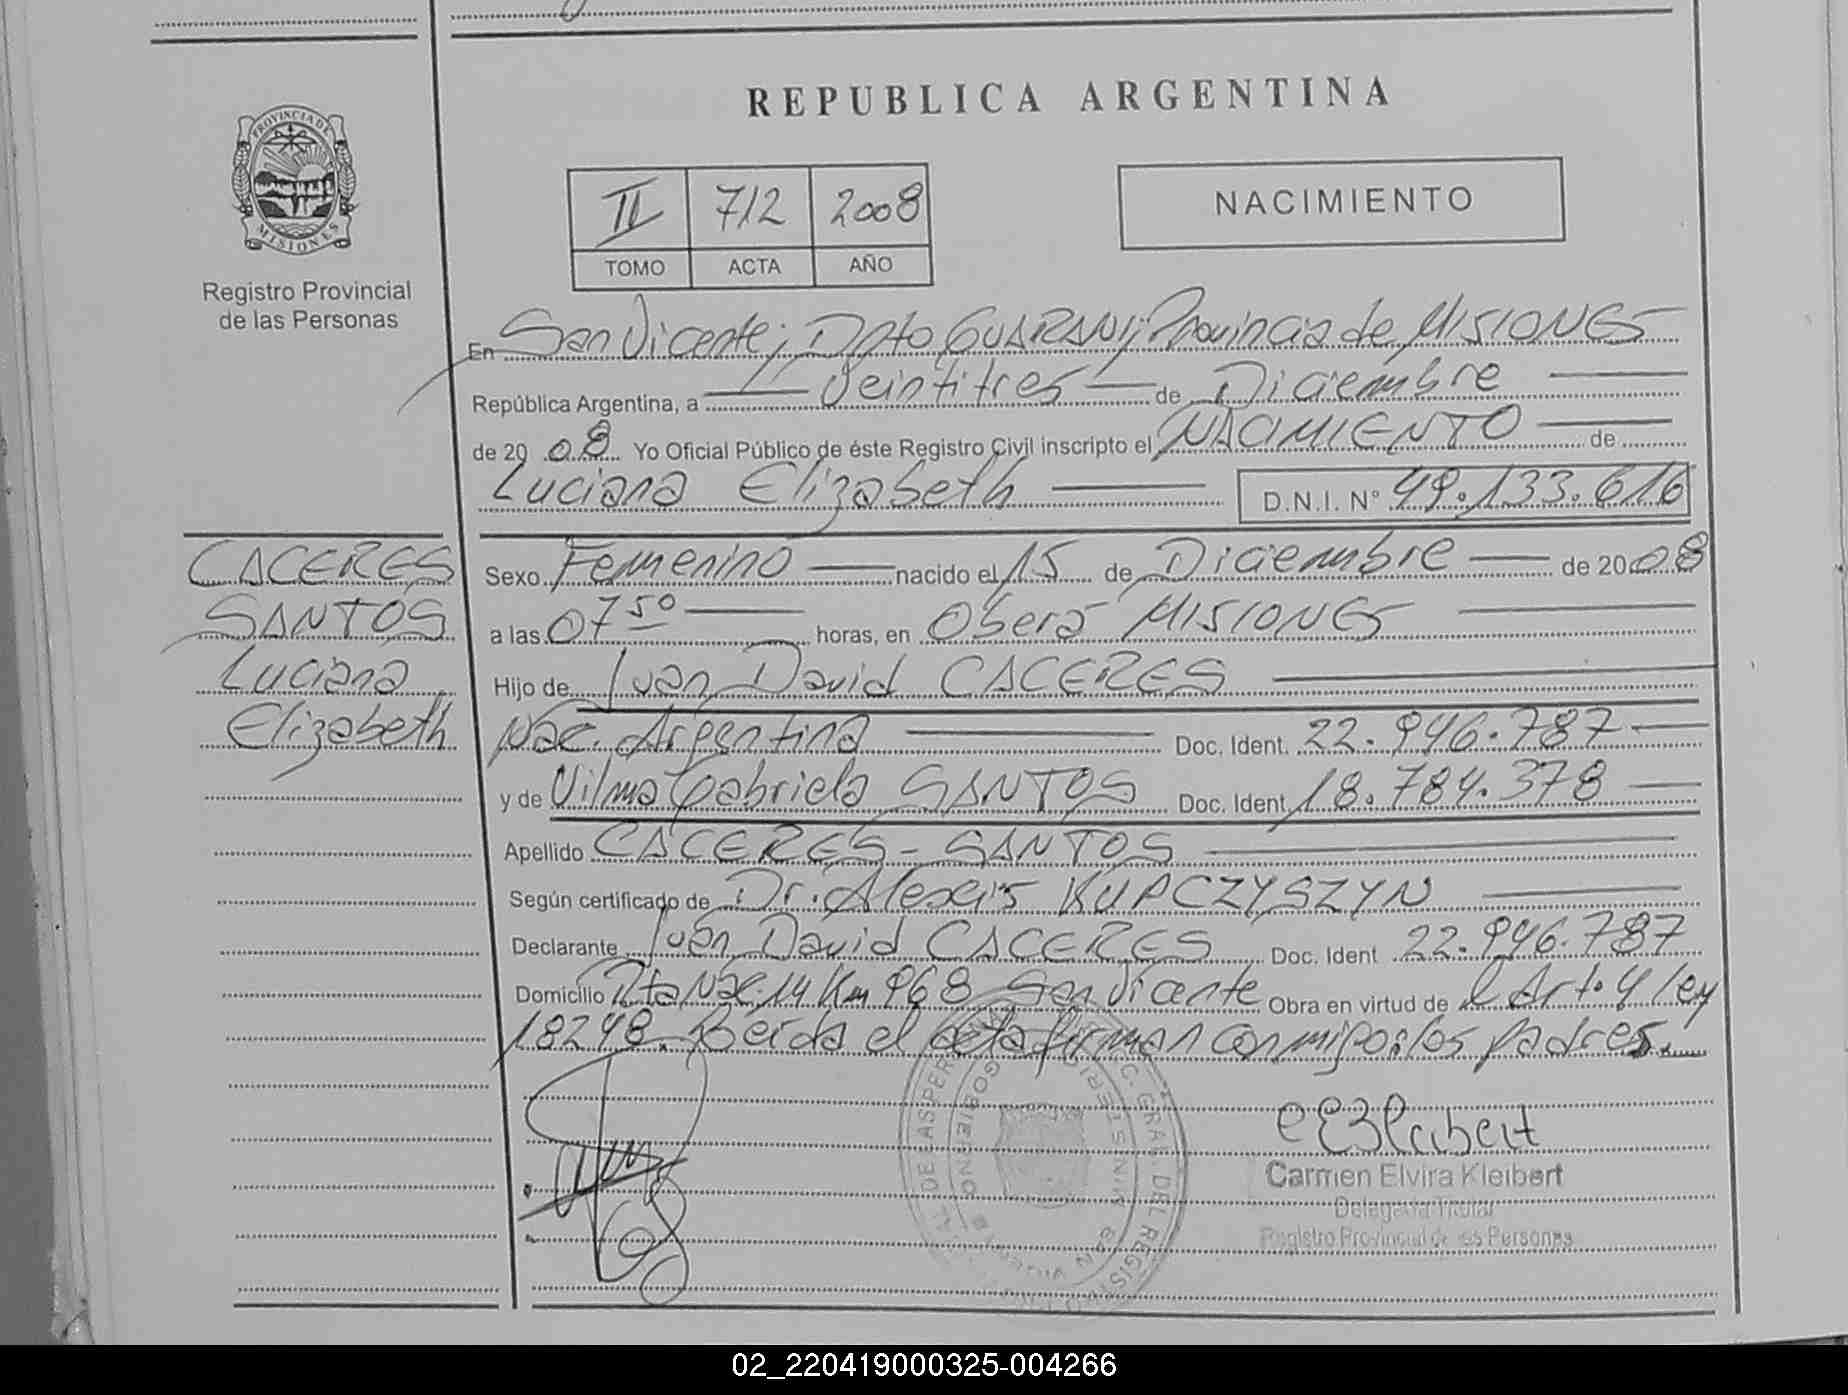 REPUBLICA ARGENTINA
PROVINCIA DE
MISIONES
Registro Provincial
de las Personas
II 712 2008
TOMO ACTA AÑO
NACIMIENTO
En San Vicente; Dpto GUARANI; Provincia de MISIONES
República Argentina, a Veintitres de Diciembre
de 2008 Yo Oficial Público de éste Registro Civil inscripto el NACIMIENTO de
Luciana Elizabeth D.N.I. N° 49.133.616
CACERES
SANTOS
Luciana
Elizabeth
Sexo Femenino nacido el 15 de Diciembre de 2008
a las 07 50 horas, en Oberá MISIONES
Hijo de Juan David CACERES
Nac. Argentina Doc. Ident. 22.946.787
y de Vilma Gabriela SANTOS Doc. Ident 18.784.378
Apellido CACERES - SANTOS
Según certificado de Dr. Alexis KUPCZYSZYN
Declarante Juan David CACERES Doc. Ident 22.946.787
Domicilio Rta Nac. 14 Km 968 San Vicente Obra en virtud de el Art. 4 ley
18248. Leida el acta firman con migo: los padres.
Carmen Elvira Kleibert
Delegada Titular
Registro Provincial de las Personas
02_220419000325-004266